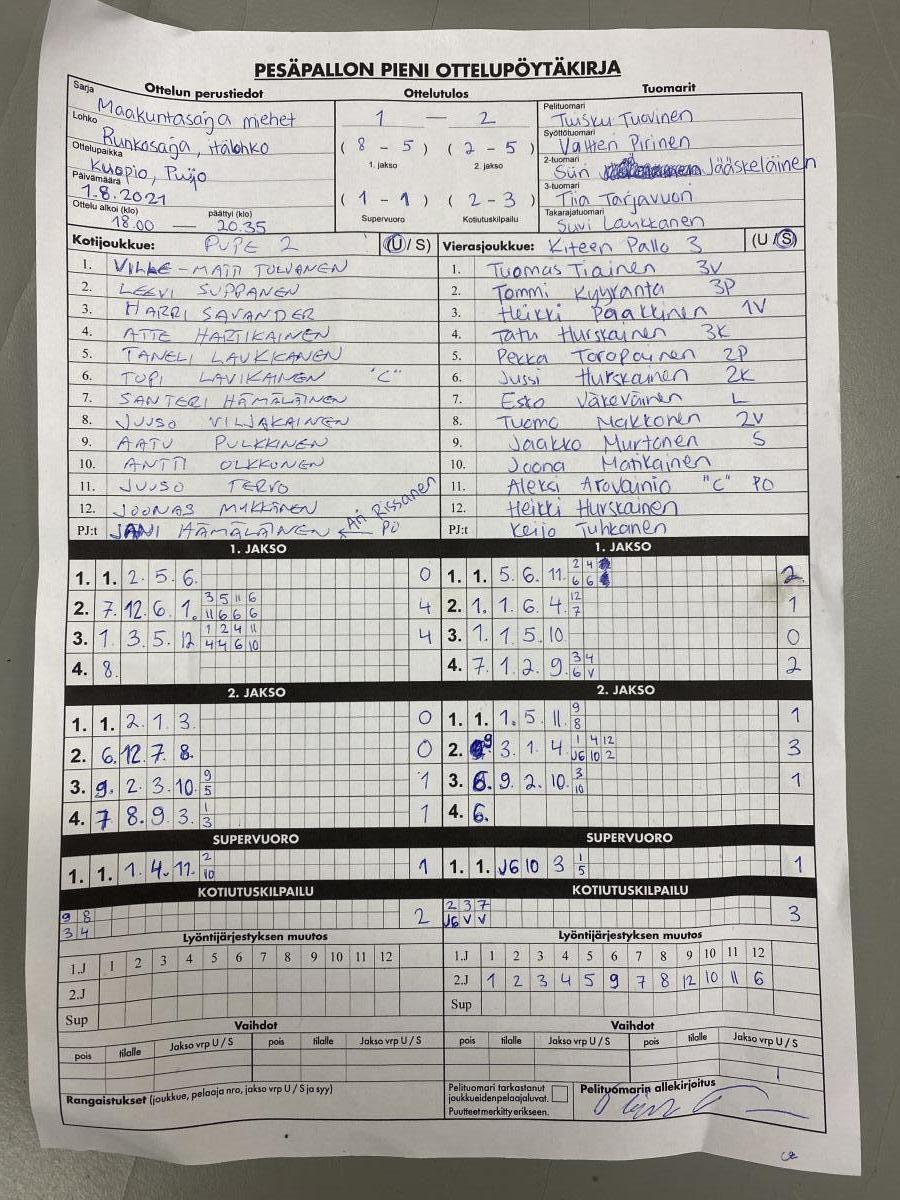 PESÄPALLON PIENI OTTELUPÖYTÄKIRJA
Ottelun perustiedot
Ottelutulos
Tuomarit
Sarja Maakuntasarja miehet
Lohko Runkosarja, Itälohko
Ottelupaikka Kuopio, Puijo
Päivämäärä 1.8.2021
Ottelu alkoi (klo) päättyi (klo)
18.00 — 20.35
1 — 2
( 8 - 5 ) ( 2 - 5 )
1. jakso 2. jakso
( 1 - 1 ) ( 2 - 3 )
Supervuoro Kotiutuskilpailu
Pelituomari Tuisku Tuovinen
Syöttötuomari Valtteri Pirinen
2-tuomari Siiri Jääskeläinen
3-tuomari Tiia Tarjavuori
Takarajatuomari Suvi Laukkanen
Kotijoukkue: PUPE 2 (U / S)
1. VILLE-MATTI TOLVANEN
2. LEEVI SUPPANEN
3. HARRI SAVANDER
4. ATTE HARTIKAINEN
5. TANELI LAUKKANEN
6. TOPI LAVIKAINEN "C"
7. SANTERI HÄMÄLÄINEN
8. JUUSO VILJAKAINEN
9. AATU PULKKINEN
10. ANTTI OLKKONEN
11. JUUSO TERVO
12. JOONAS MYKKÄNEN
PJ:t JANI HÄMÄLÄINEN ← Ari Rissanen PO
Vierasjoukkue: Kiteen Pallo 3 (U / S)
1. Tuomas Tiainen 3V
2. Tommi Kyyranta 3P
3. Heikki Pääkkinen 1V
4. Tatu Hurskainen 3K
5. Pekka Toropainen 2P
6. Jussi Hurskainen 2K
7. Esko Väkeväinen L
8. Tuomo Makkonen 2V
9. Jaakko Murtonen S
10. Joona Matikainen
11. Aleksi Arovainio "C" PO
12. Heikki Hurskainen
PJ:t Keijo Tuhkanen
1. JAKSO
1. 1. 2. 5. 6. 0
2. 7. 12. 6. 1. 3 5 11 6 4
11 6 6 6
3. 1. 3. 5. 12 1 2 4 11 4
4 4 6 10
4. 8.
1. JAKSO
1. 1. 5. 6. 11. 2 4 2
6 6
2. 1. 1. 6. 4. 12 1
7
3. 1. 1. 5. 10 0
4. 7. 1. 2. 9. 3 4 2
6 V
2. JAKSO
1. 1. 2. 1. 3. 0
2. 6. 12. 7. 8. 0
3. 9. 2. 3. 10. 9 1
5
4. 7 8. 9. 3. 1 1
3
2. JAKSO
1. 1. 1. 5. 11. 9 1
8
2. 9 3. 1. 4. 1 4 12 3
J6 10 2
3. 6. 9. 2. 10. 3 1
10
4. 6.
SUPERVUORO
1. 1. 1. 4. 11. 2 1
10
SUPERVUORO
1. 1. J6 10 3 1 1
5
KOTIUTUSKILPAILU
9 8 2
3 4
KOTIUTUSKILPAILU
2 3 7 3
J6 V V
Lyöntijärjestyksen muutos
1.J 1 2 3 4 5 6 7 8 9 10 11 12
2.J
Sup
Lyöntijärjestyksen muutos
1.J 1 2 3 4 5 6 7 8 9 10 11 12
2.J 1 2 3 4 5 9 7 8 12 10 11 6
Sup
Vaihdot
pois tilalle Jakso vrp U / S pois tilalle Jakso vrp U / S
Vaihdot
pois tilalle Jakso vrp U / S pois tilalle Jakso vrp U / S
Rangaistukset (joukkue, pelaaja nro, jakso vrp U / S ja syy)
Pelituomari tarkastanut
joukkueiden pelaajaluvat.
Puutteet merkitty erikseen.
Pelituomarin allekirjoitus